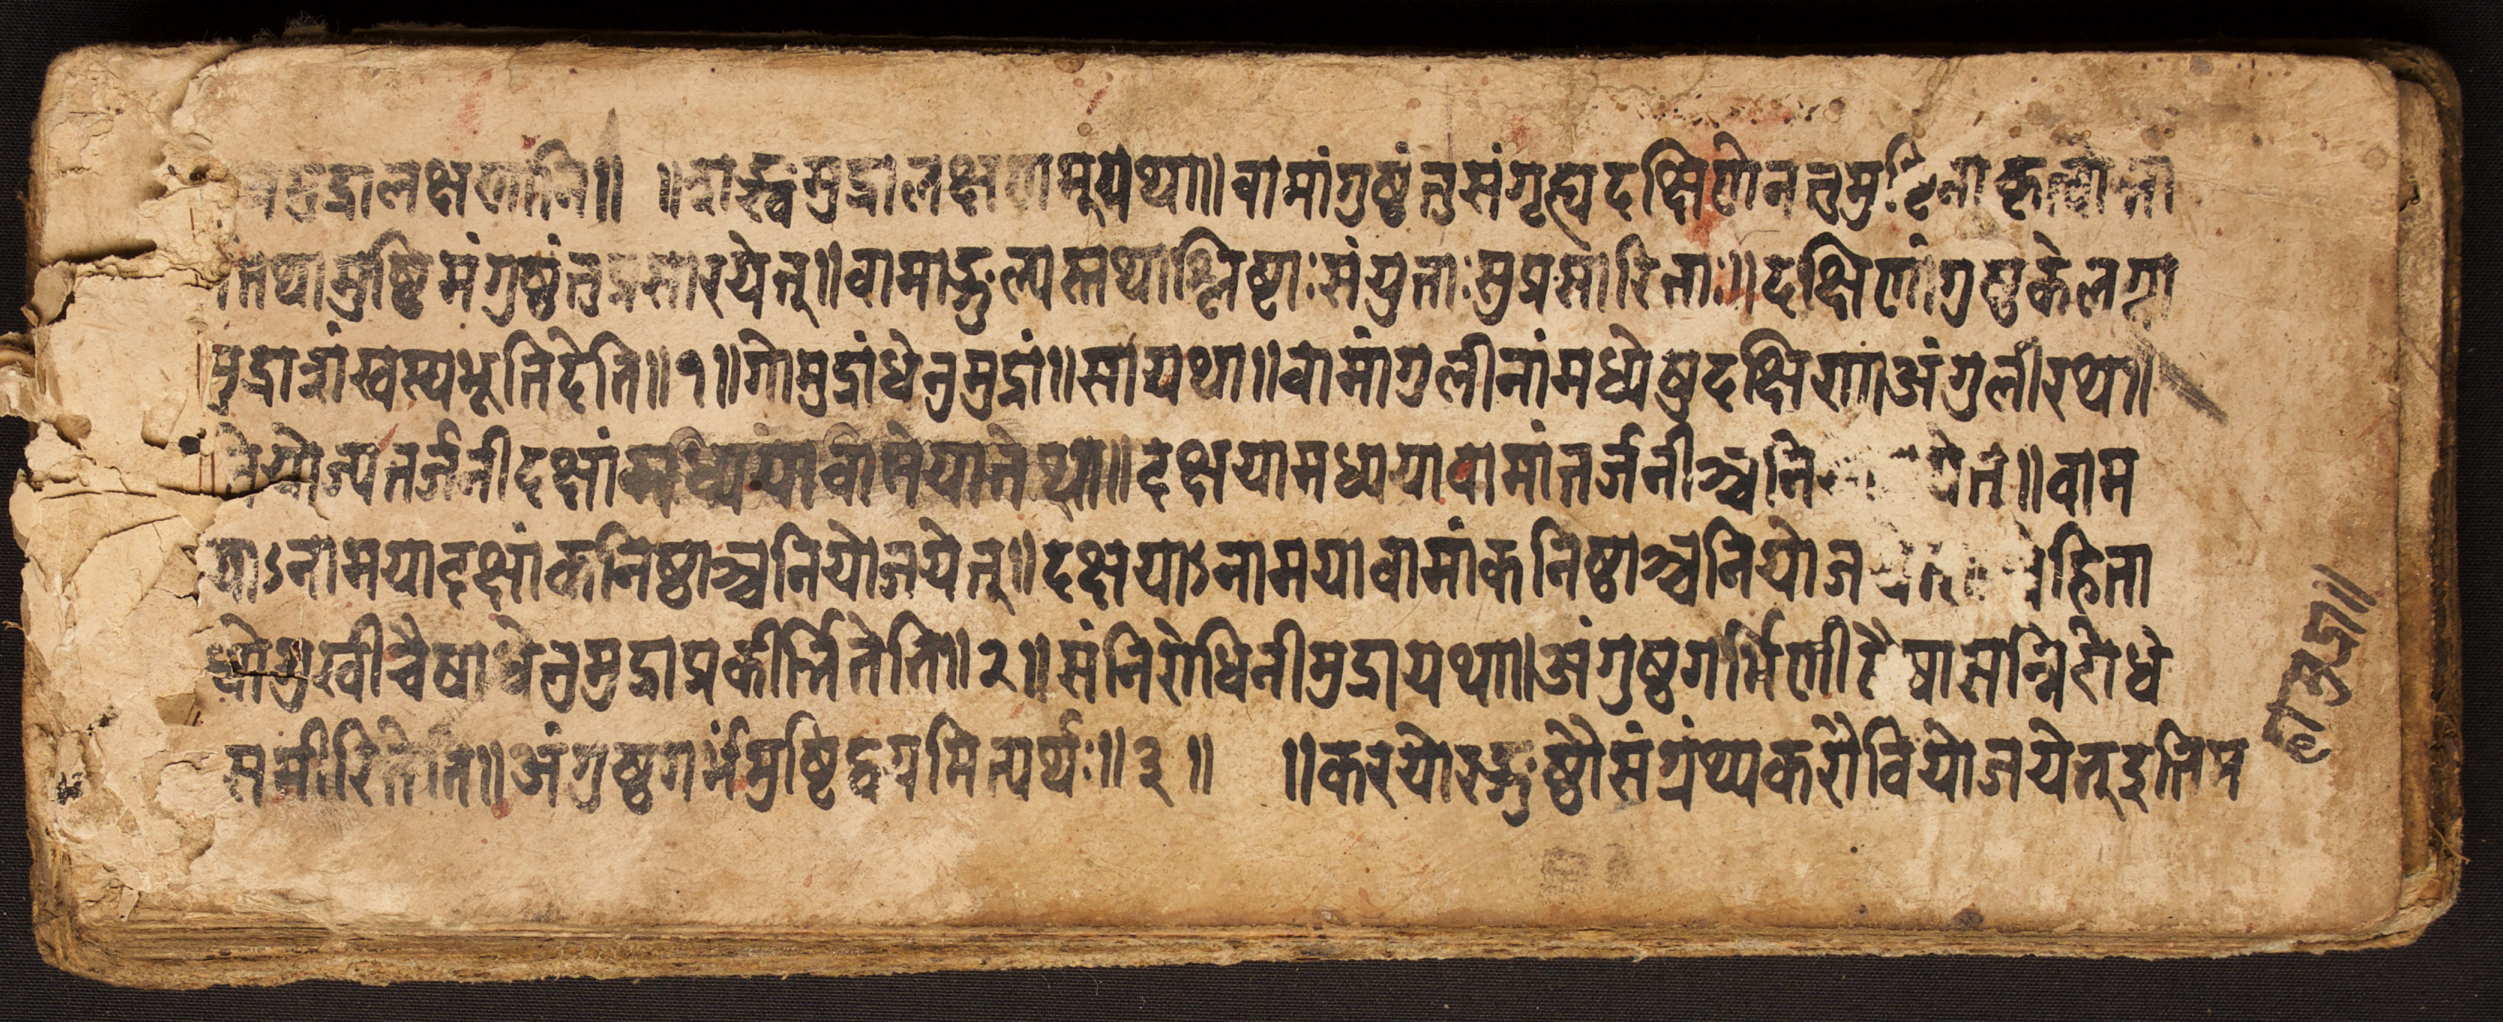 मुद्रालक्षणानि॥ ॥शङ्खमुद्रालक्षणम्यथा॥वामांगुष्ठंतुसंगृह्यदक्षिणेनतुमुष्टिनाकृत्वोत्ता
नंतथामुष्टिमंगुष्ठंतुप्रसारयेत्॥वामाङ्गुल्यस्तथाश्लिष्टाःसंयुताःसुप्रसारिताः॥दक्षिणांगुष्ठकेलग्ना
मुद्राशंखस्यभूतिदेति॥१॥गोमुद्रांधेनुमुद्रां॥सायथा॥वामांगुलीनांमध्येषुदक्षिणाअंगुलीरथा॥
नियोज्यतर्जनींदक्षांमध्ययावामेयातथा॥दक्षयामध्ययावामांतर्जनीञ्चनि येत्॥वाम
याऽनामयादक्षांकनिष्ठाञ्चनियोजयेत्॥दक्षयाऽनामयावामांकनिष्ठाञ्चनियोज हिता
धोमुखीचैषाधेनुमुद्राप्रकीर्त्तितेति॥२॥संनिरोधिनीमुद्रायथा॥अंगुष्ठगर्भिणीसैषासन्निरोधे
समीरितेति॥अंगुष्ठगर्भमुष्टिद्वयमित्यर्थः॥३॥ ॥करयोरङ्गुष्ठौसंग्रंथ्यकरौवियोजयेत्इतिप्र
मुद्रा॥